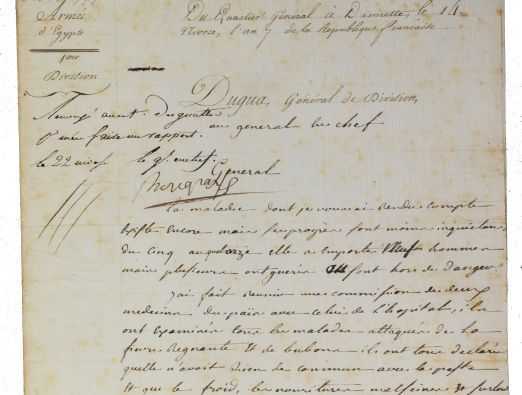 Armée
d'Egypte
Division
Du Quartier général à Damiette, le 14
Nivose, l'an 7 de la République française
Dugua, Général de Division,
au general en chef
pour en faire un rapport.
le 22 nivose le gl. en chef
General
la maladie dont je vous ai rendu compte
existe encore mais ses progrès sont moins inquietans
du cinq au quatorze elle a emporté neuf hommes
mais plusieurs ont gueri et sont hors de danger
j'ai fait reunir une commission de deux
medecins du pais avec celui de l'hopital, ils
ont examiné tous les malades attaqués de la
fievre regnante et de bubons ils ont tous declaré
quelle n'avoit rien de commun avec la peste
et que le froid, les nouritures malseines et surtout